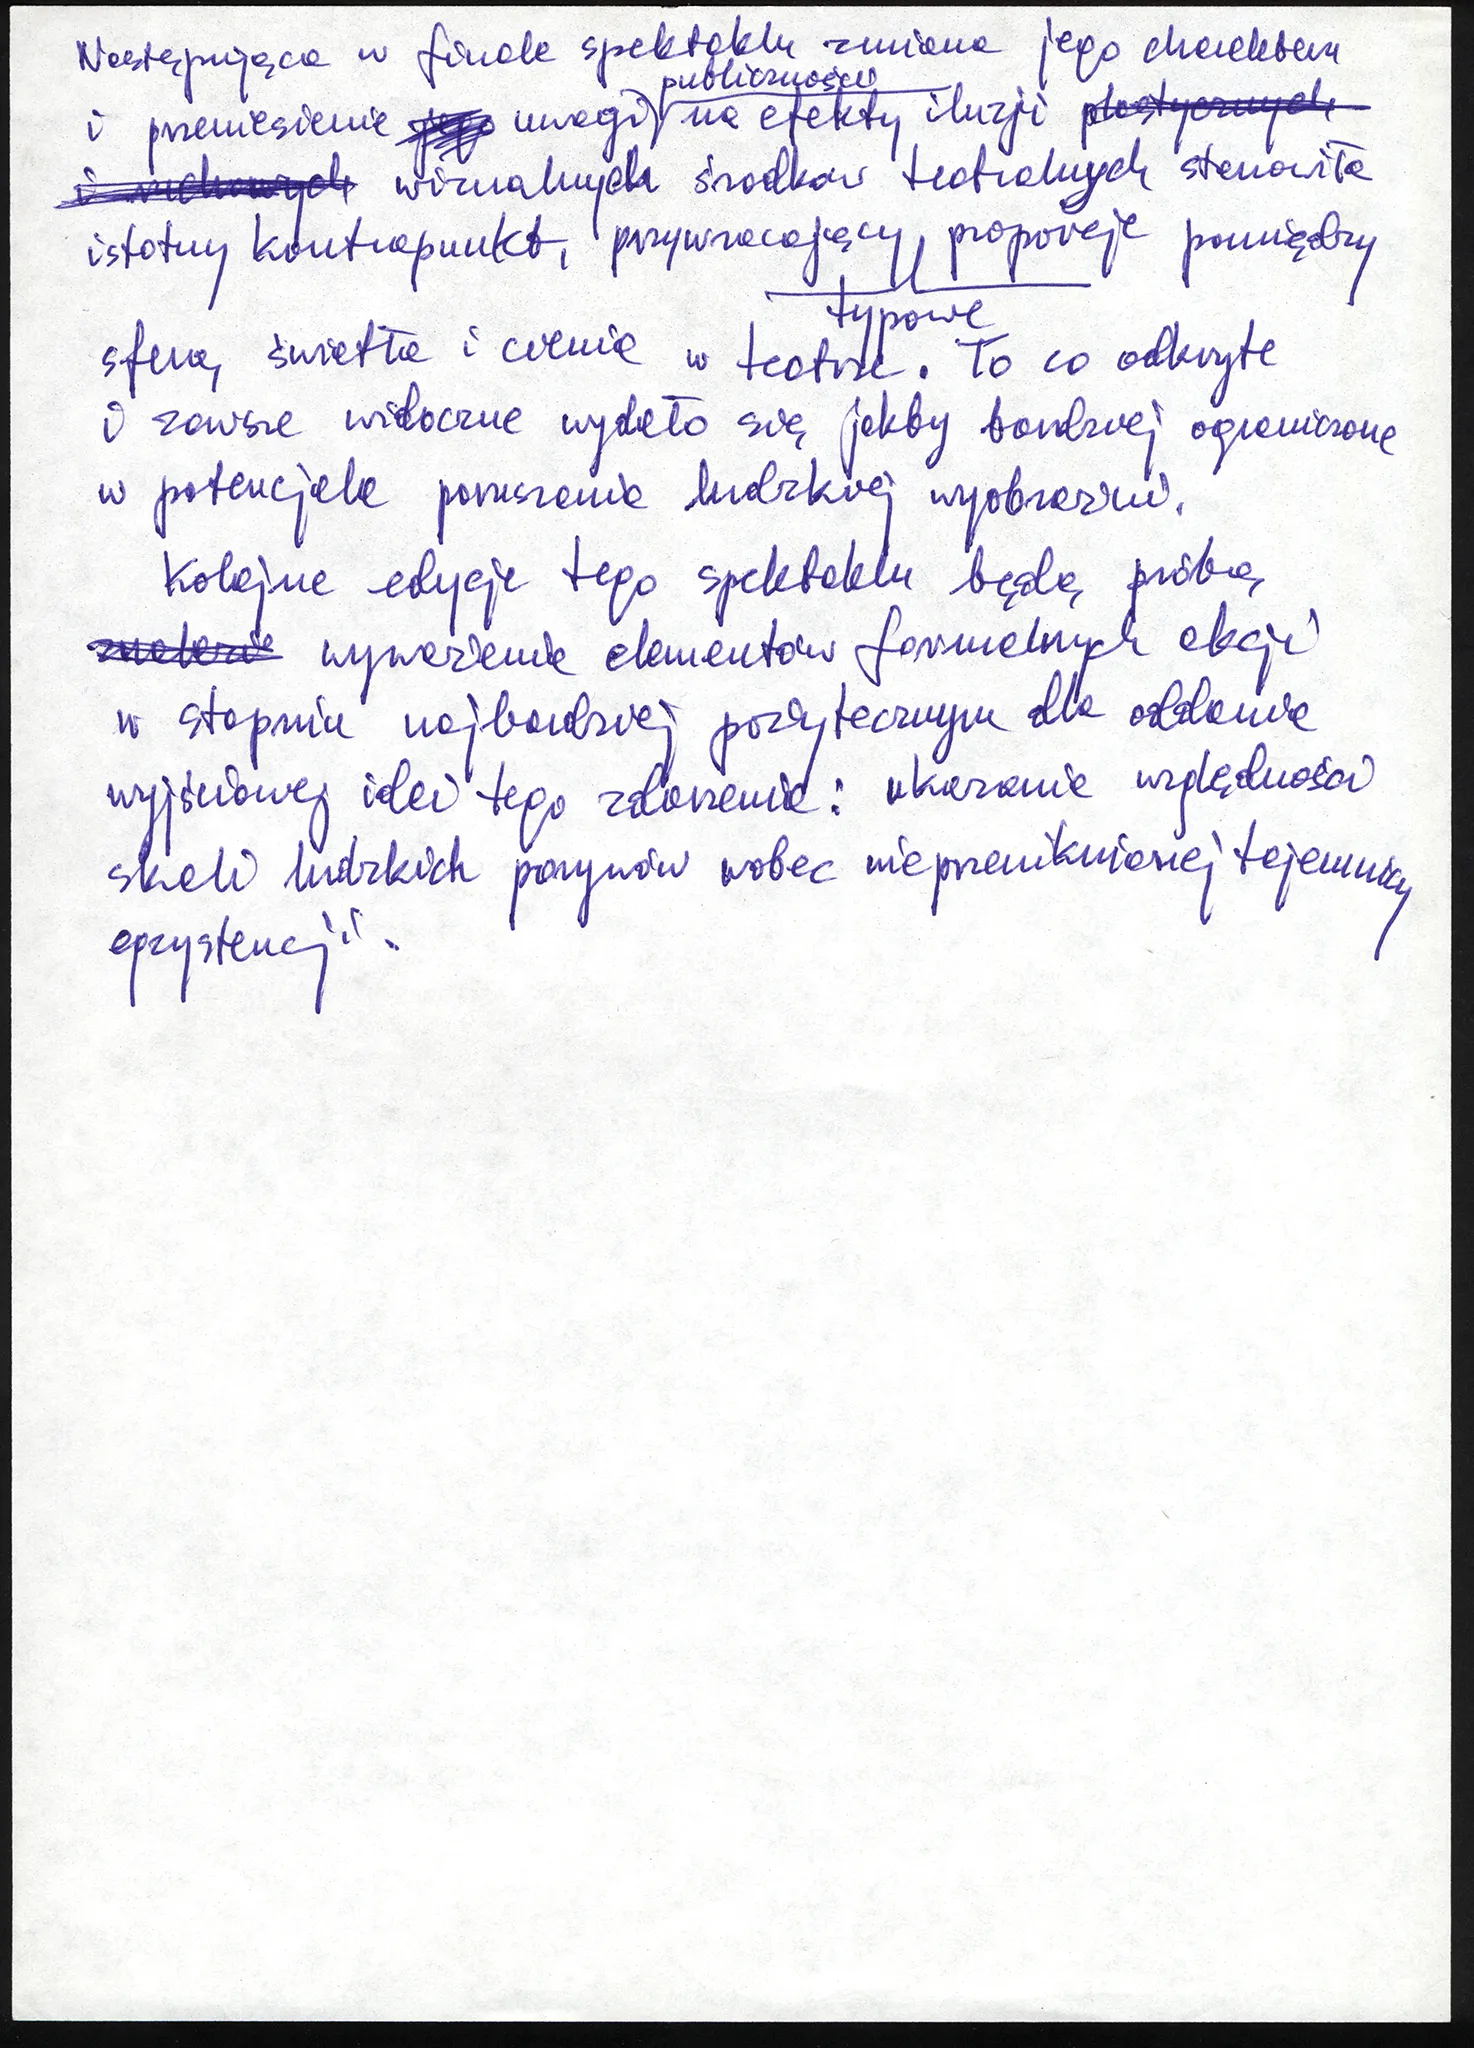 Następująca w finale spektaklu zmiana jego charakteru
publiczności
i przeniesienie jego uwagi na efekty iluzji plastycznych
i ruchowych wizualnych środków teatralnych stanowiła
istotny kontrapunkt, przywracający proporcje pomiędzy
typowe
sferą światła i cienia w teatrze. To co odkryte
i zawsze widoczne wydało się jakby bardziej ograniczone
w potencjale poruszania ludzkiej wyobraźni.
Kolejne edycje tego spektaklu będą próbą
znalezie wyważenia elementów formalnych akcji
w stopniu najbardziej pożytecznym dla oddania
wyjściowej idei tego zdarzenia: ukazanie względności
skali ludzkich porywów wobec nieprzeniknionej tajemnicy
egzystencji.